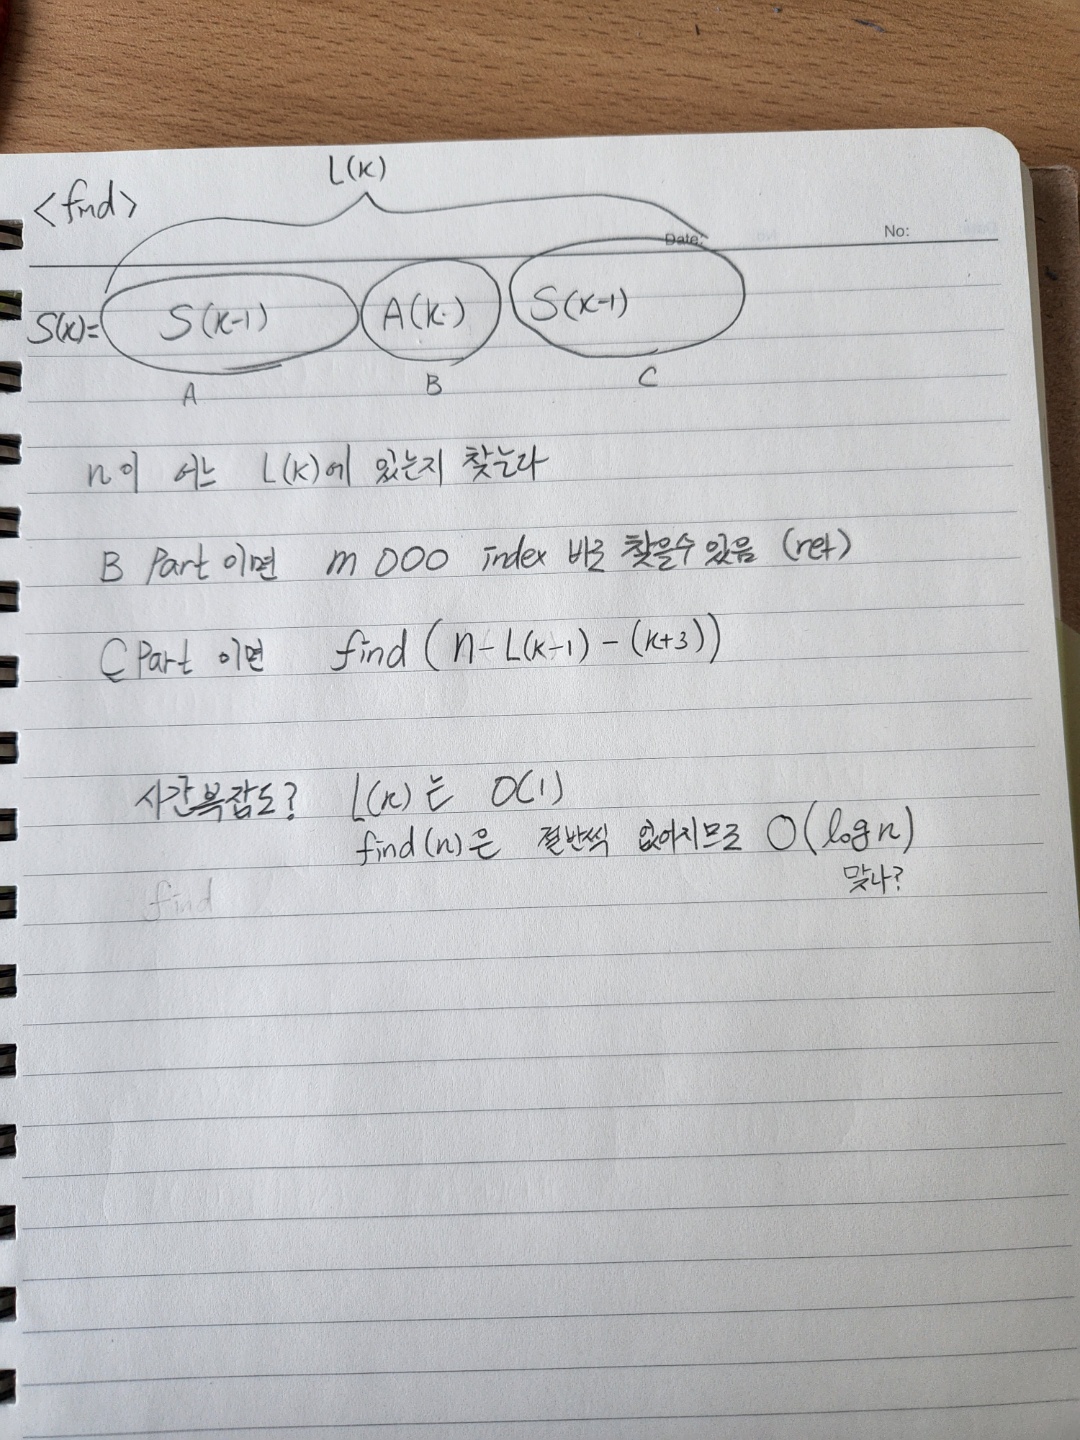 L(K)
<find>
Date:
No:
S(K)= S(K-1) A(K) S(K-1)
A B C
n이 어느 L(K)에 있는지 찾는다
B Part 이면 m OOO index 바로 찾을수 있음 (ret)
C Part 이면 find (n-L(K-1)-(K+3))
시간복잡도? L(K)는 O(1)
find(n)은 절반씩 없어지므로 O(log n)
맞나?
find